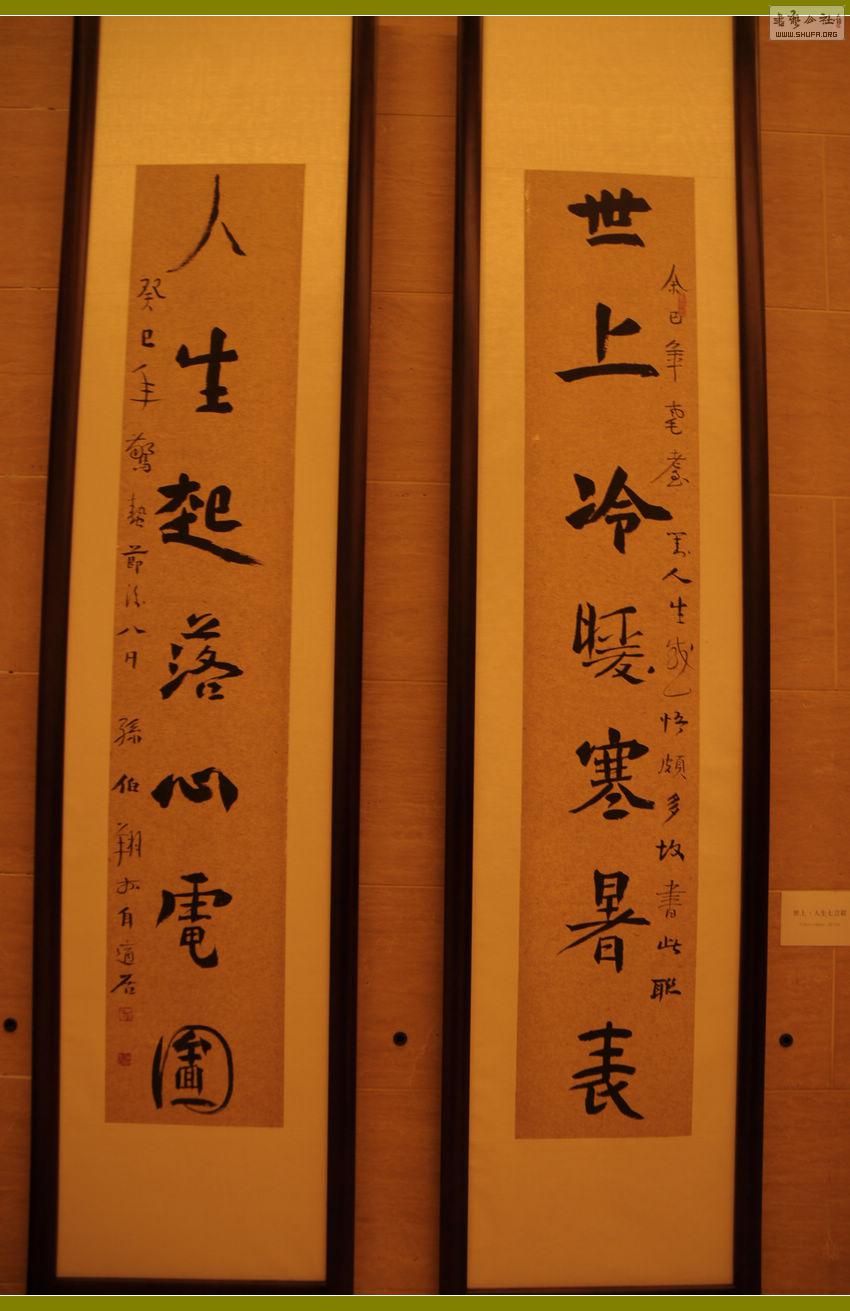 世上冷暖寒暑表
余已年耄耋 人生感悟頗多故書此聯
人生起落心電圖
癸巳年驚蟄節後八日 孫伯翔於自適居
世上·人生七言聯
WWW.SHUFA.ORG